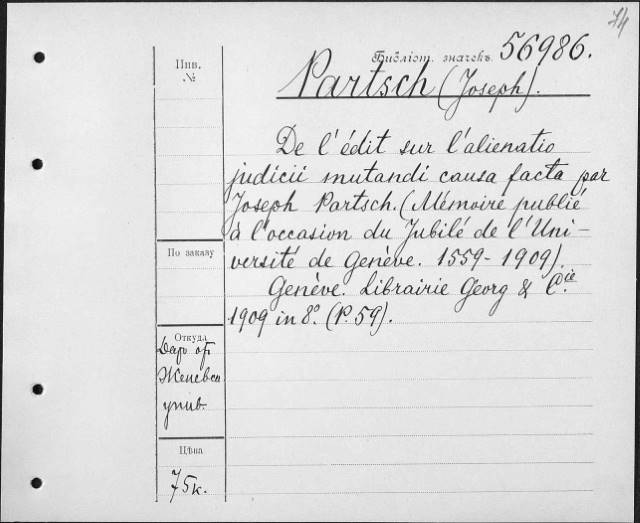 74
Инв.
№
Библіот. значекъ 56986.
Partsch (Joseph).
De l'édit sur l'alienatio
judicii mutandi causa facta par
Joseph Partsch. (Mémoire publié
à l'occasion du Jubilé de l'Uni-
versité de Genève. 1559-1909).
Genève. Librairie Georg & Cie.
1909 in 8°. (P. 59).
По заказу
Откуда
Даръ от
Женевск
унив.
Цѣна
75к.